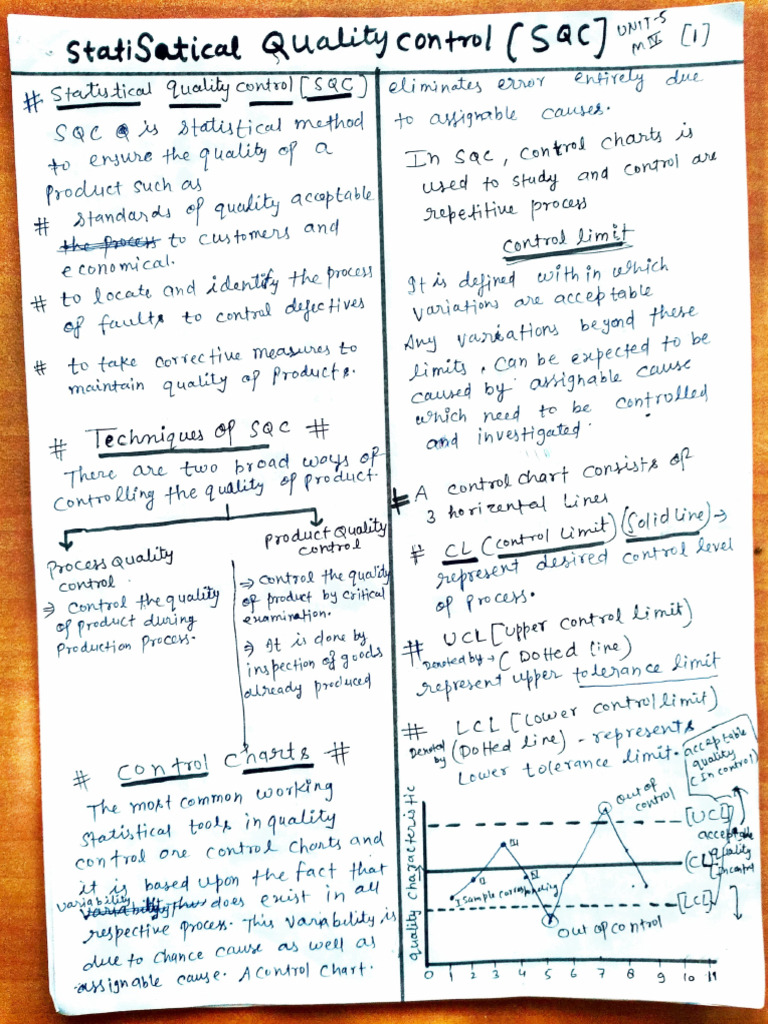 StatiSatical Quality control [SQC] UNIT-5 M IV [1]
# Statistical quality control [SQC]
SQC is statistical method
to ensure the quality of a
product such as
# standards of quality acceptable
the process to customers and
economical.
# to locate and identify the process
of faults to control defectives
# to take corrective measures to
maintain quality of products.
# Techniques of SQC #
There are two broad ways of
controlling the quality of product.
Process Quality
control
⇒ control the quality
of product during
Production Process.
Product Quality
control
⇒ control the quality
of product by critical
examination.
⇒ It is done by
inspection of goods
already produced
# control charts #
The most common working
statistical tools in quality
control are control charts and
it is based upon the fact that
variability does exist in all
respective process. This variability is
due to chance cause as well as
assignable cause. A control chart.
eliminates error entirely due
to assignable causes.
In SQC, control charts is
used to study and control are
repetitive process
control limit
It is defined with in which
variations are acceptable
Any variations beyond these
limits, can be expected to be
caused by assignable cause
which need to be controlled
and investigated.
# A control chart consists of
3 horizental Lines
# CL (control limit) (solid line) →
represent desired control level
of process.
# UCL [upper control limit)
Denoted by → (Dotted line)
represent upper tolerance limit
# LCL [lower control limit)
Denoted by (Dotted line) - represents
Lower tolerance limit.
acceptable
quality
(in control)
quality characteristic
out of
control
[UCL]
acceptable
quality
(CL)
[LCL]
I sample corresponding
out of control
0 1 2 3 4 5 6 7 8 9 10 11